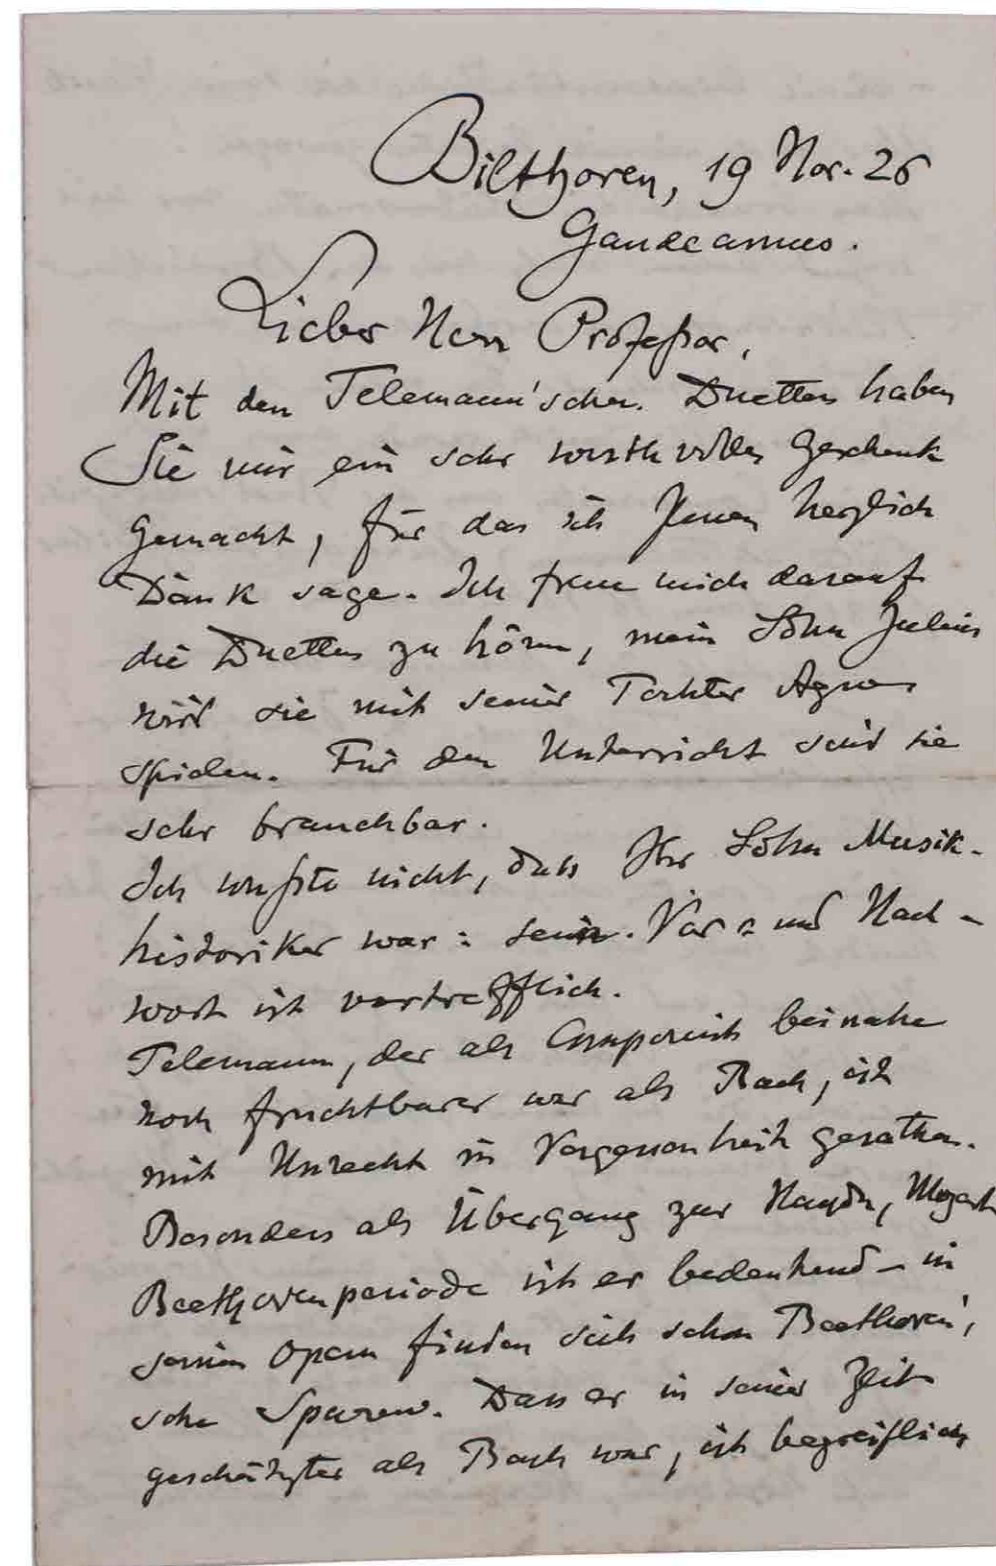 Bilthoven, 19 Nov. 26
Gaudeamus.
Lieber Herr Professor,
Mit den Telemann'schen Duetten haben
Sie mir ein sehr werthvolles Geschenk
gemacht, für das ich Ihnen herzlich
Dank sage. Ich freue mich darauf
die Duetten zu hören, mein Sohn Julius
wird sie mit seiner Tochter Agnes
spielen. Für den Unterricht sind sie
sehr brauchbar.
Ich wußte nicht, dass Ihr Sohn Musik-
historiker war: sein Vor= und Nach-
wort ist vortrefflich.
Telemann, der als Componist beinahe
noch fruchtbarer war als Bach, ist
mit Unrecht in Vergessenheit gerathen.
Besonders als Übergang zur Haydn, Mozart
Beethovenperiode ist er bedeutend – in
seinen Opern finden sich schon Beethoven'
sche Spuren. Dass er in seiner Zeit
geschätzter als Bach war, ist begreiflich